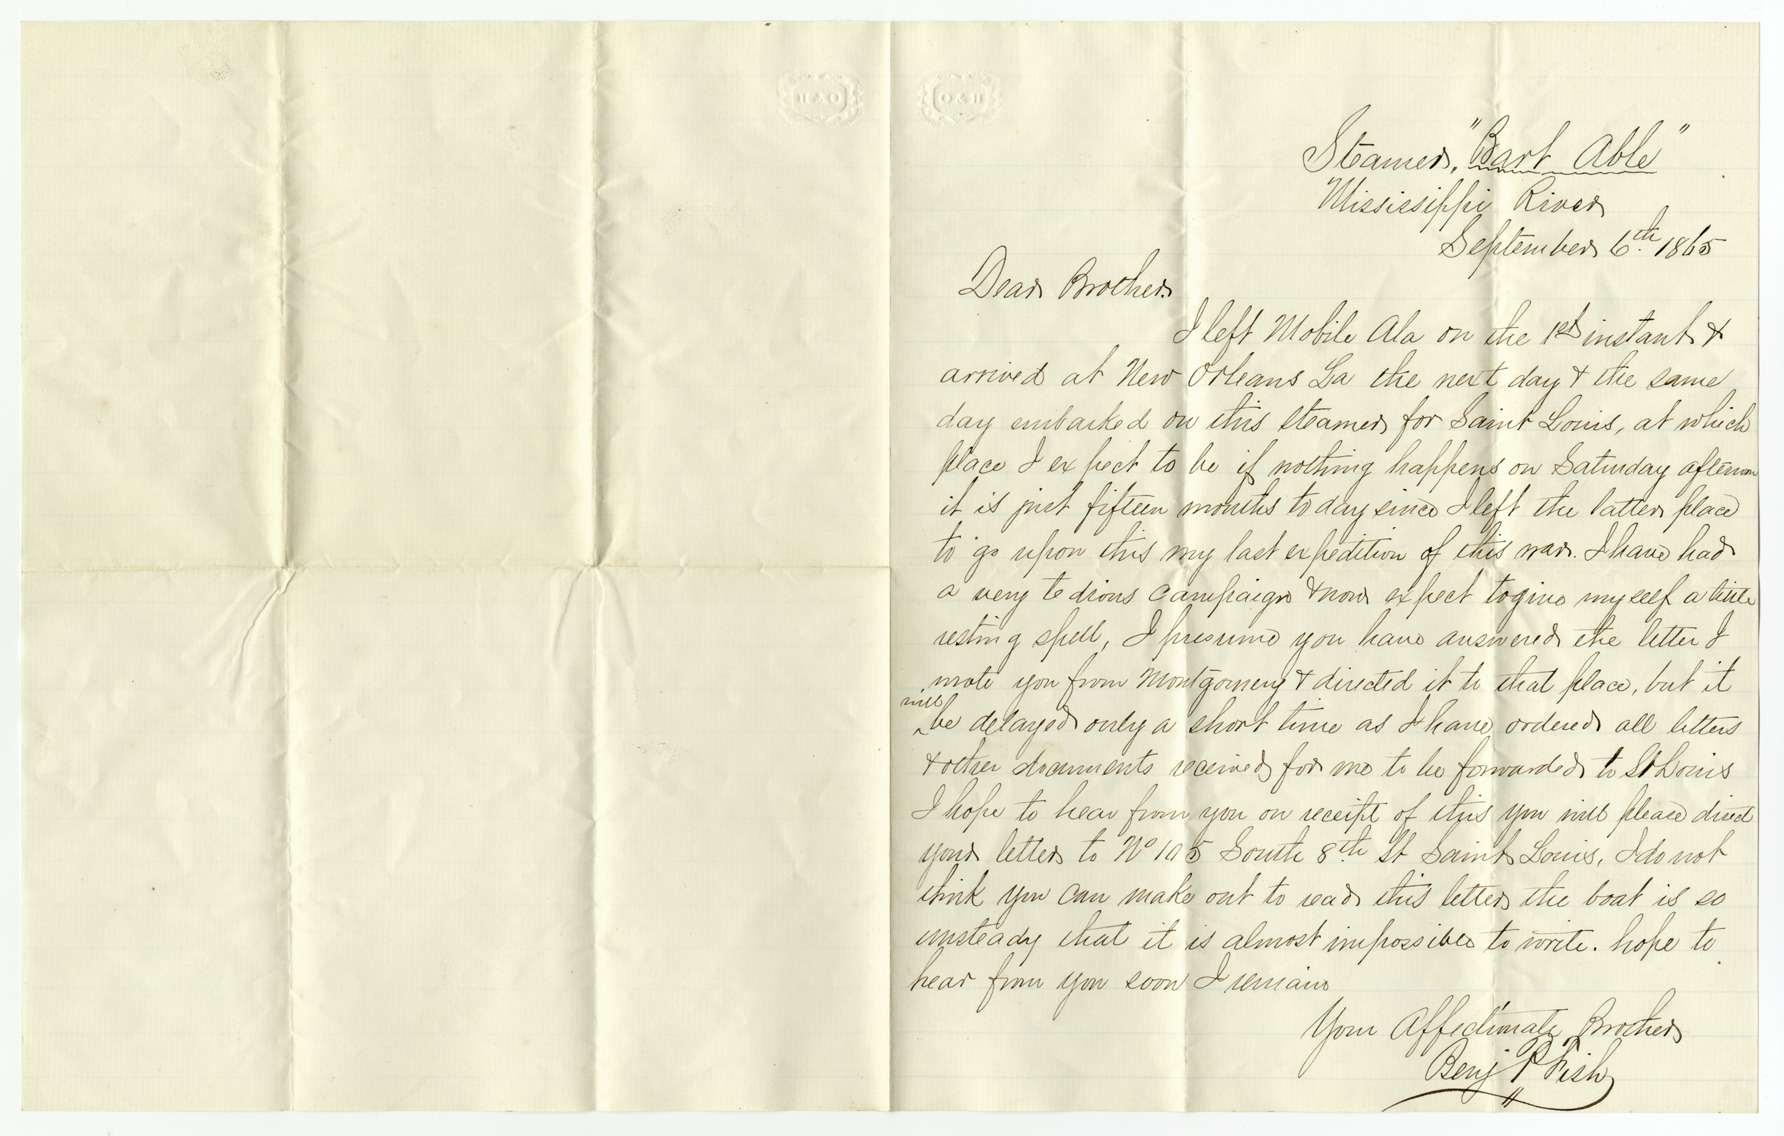 O & H
Steamer, "Bart Able"
Mississippi River
September 6th 1865
Dear Brother
I left Mobile Ala on the 1st instant &
arrived at New Orleans La the next day & the same
day embarked on this steamer for Saint Louis, at which
place I expect to be if nothing happens on Saturday afternoon
it is just fifteen months to day since I left the latter place
to go upon this my last expedition of this war. I have had
a very tedious campaign & now expect to give myself a little
resting spell, I presume you have answered the letter I
wrote you from Montgomery & directed it to that place, but it
will
^be delayed only a short time as I have ordered all letters
& other documents received for me to be forwarded to St Louis
I hope to hear from you on receipt of this you will please direct
your letter to No 105 South 8th St Saint Louis, I do not
think you can make out to read this letter the boat is so
unsteady that it is almost impossible to write. hope to
hear from you soon I remain
Your Affectionate Brother
Benj P Fish